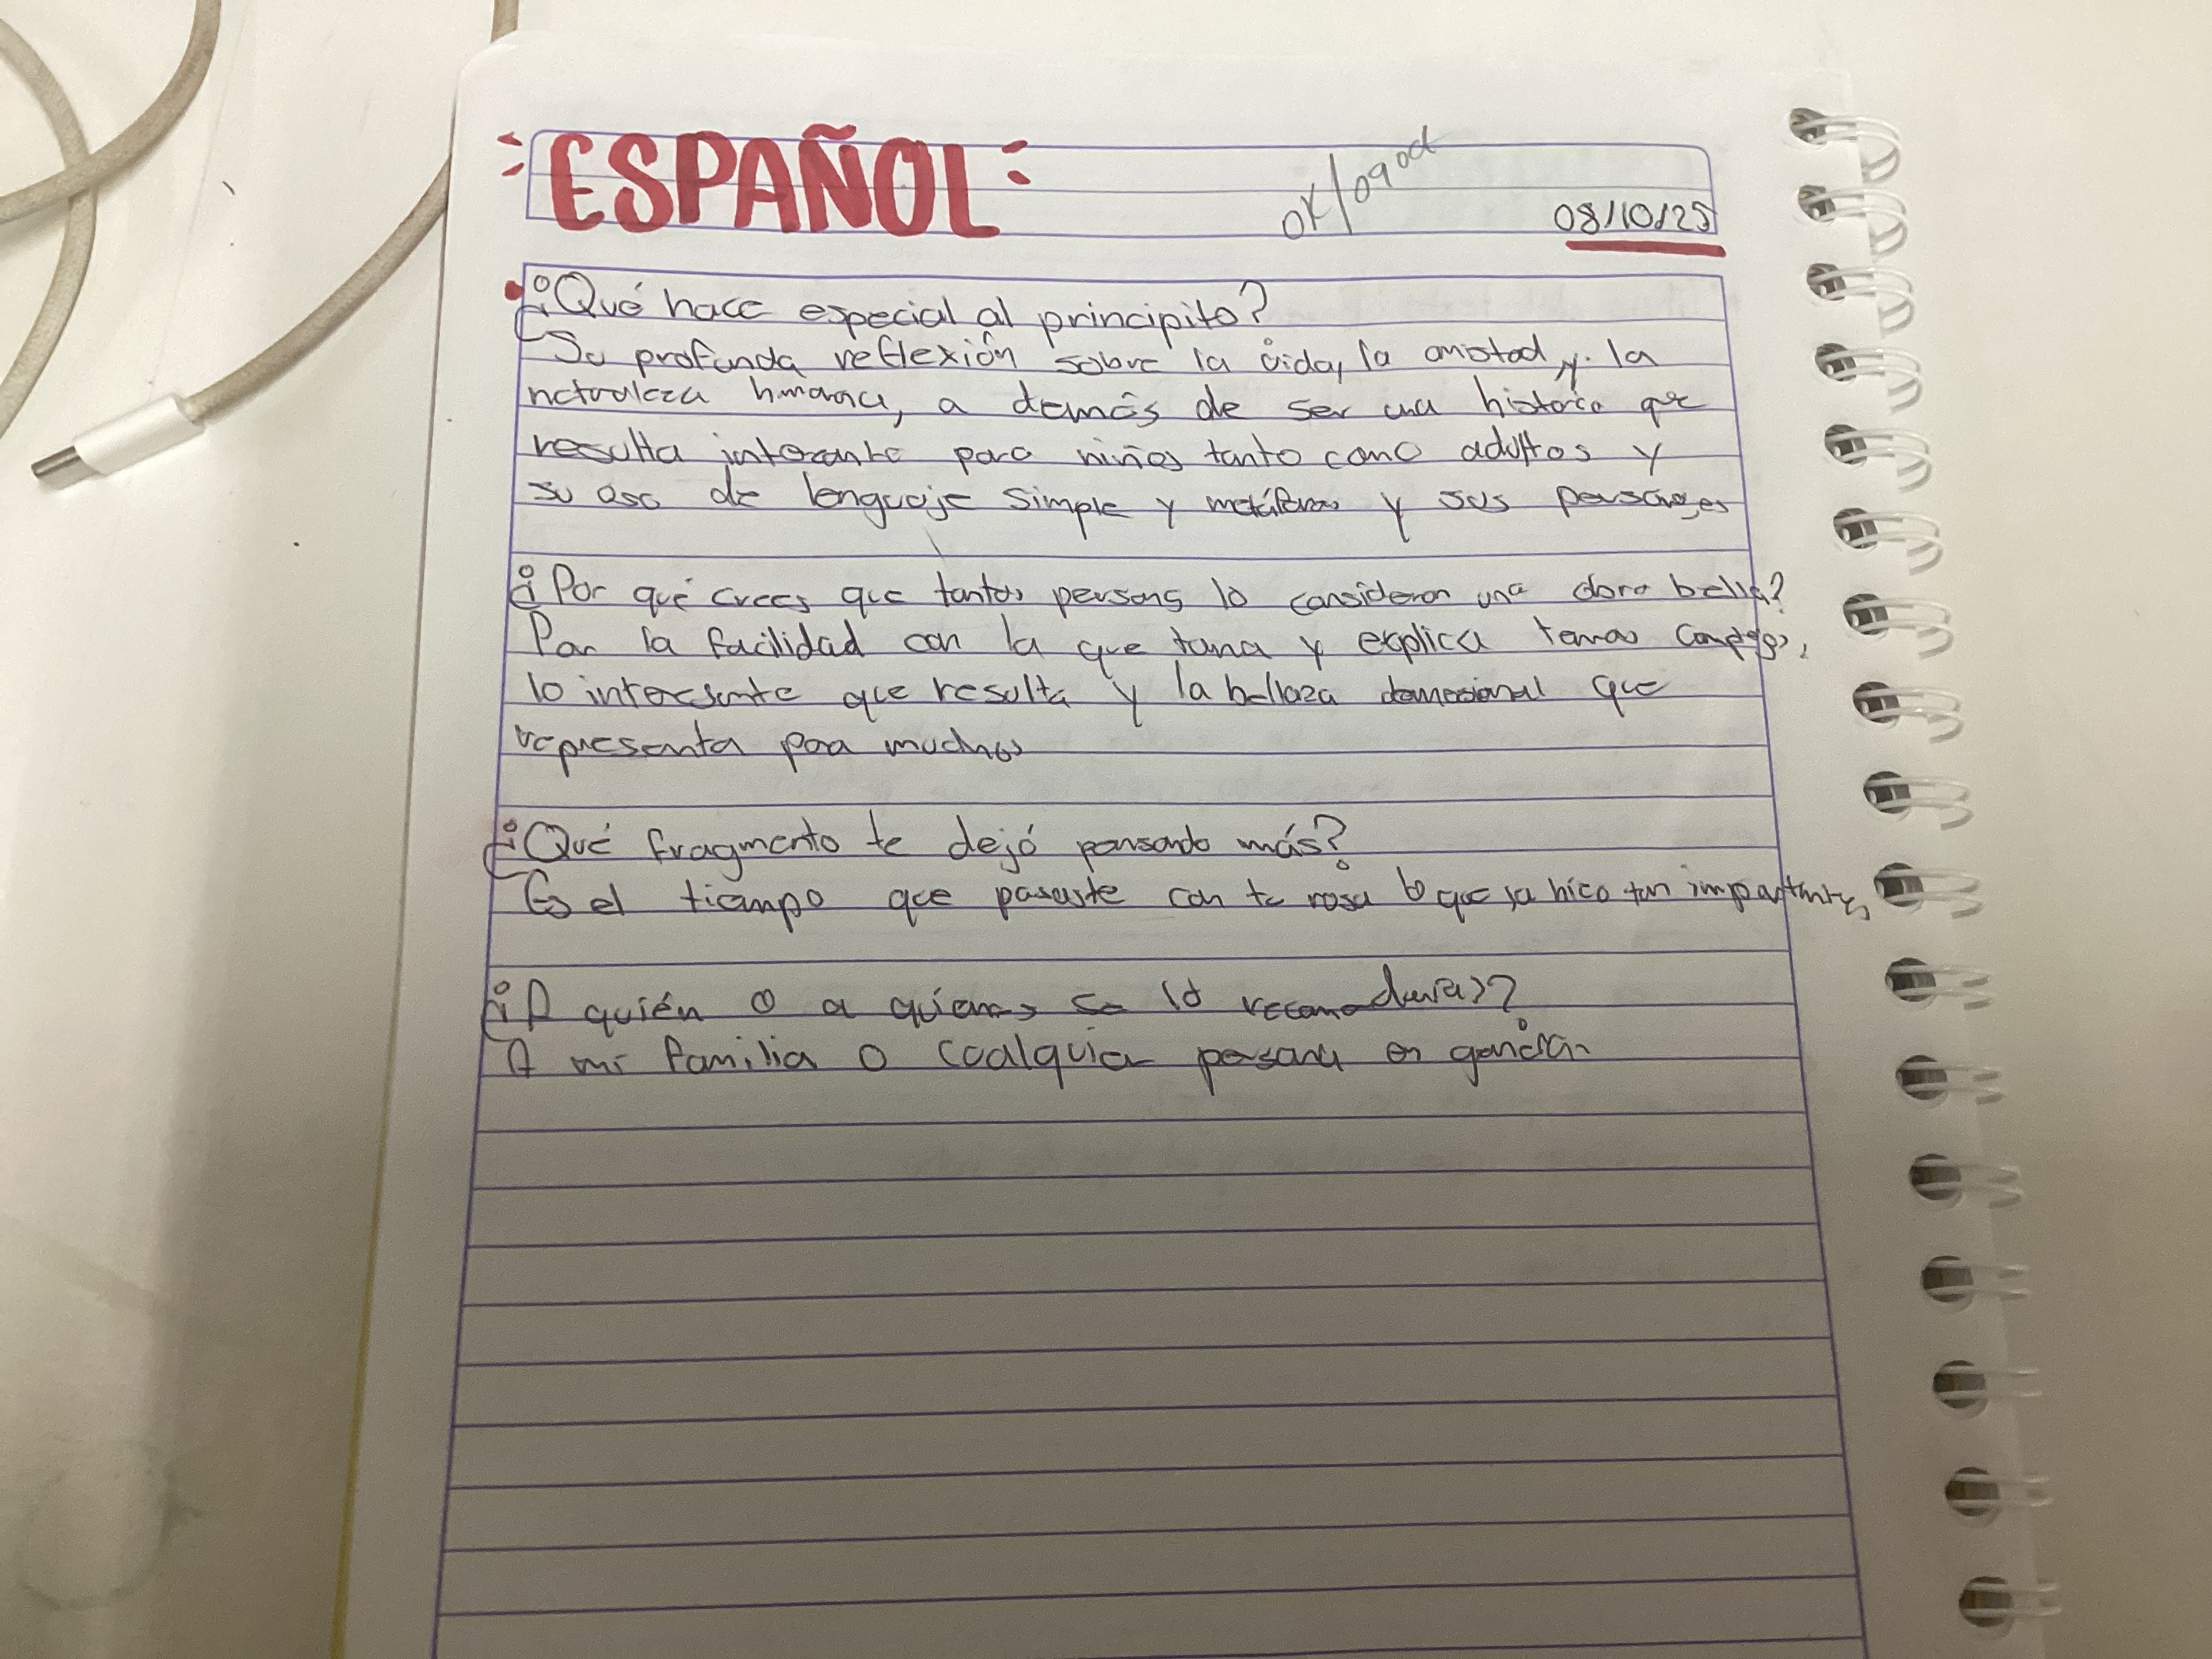 ESPAÑOL
08/10/25
¿Qué hace especial al principito?
Su profunda reflexión sobre la vida, la amistad y la
naturaleza humana, a demás de ser una historia que
resulta para niños tanto como adultos y
su uso de lenguaje simple y metáforas y sus personajes
¿Por qué crees que tantas personas lo consideran una obra bella?
Por la facilidad con la que toma y explica temas
lo interesante que resulta y la belleza que
representa para muchos
¿Qué fragmento te dejó pensando más?
Es el tiempo que pasaste con tu rosa lo que la hizo tan importante
¿A quién o a quienes se lo recomendarías?
A mi familia o cualquier persona en general